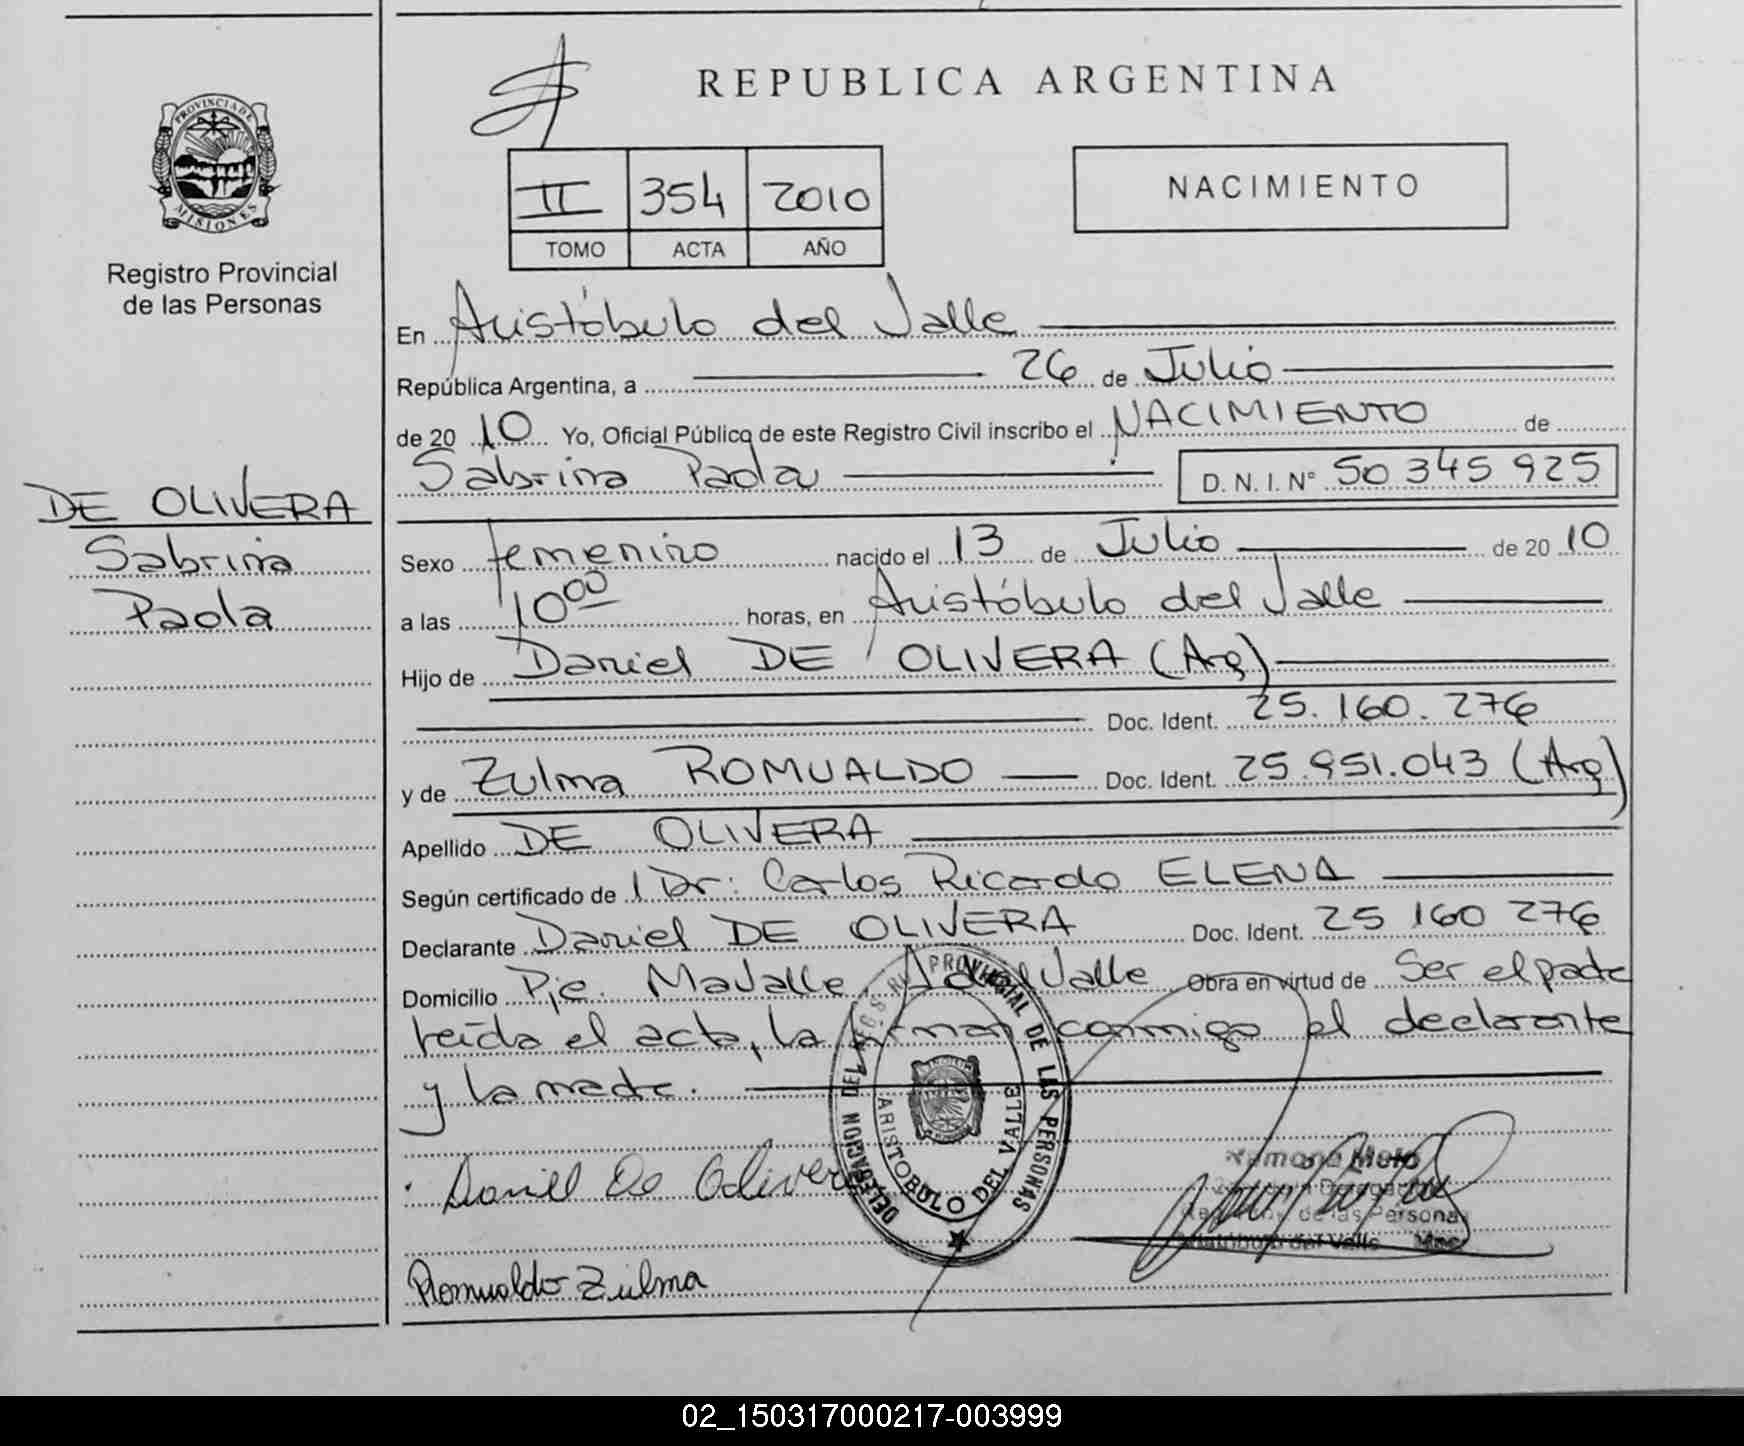 REPUBLICA ARGENTINA
PROVINCIA DE
MISIONES
Registro Provincial
de las Personas
II 354 2010
TOMO ACTA AÑO
NACIMIENTO
En Aristóbulo del Valle
República Argentina, a 26 de Julio
de 20 10 Yo, Oficial Público de este Registro Civil inscribo el NACIMIENTO de
Sabrina Paola D. N. I. N° 50 345 925
DE OLIVERA
Sabrina
Paola
Sexo femenino nacido el 13 de Julio de 20 10
a las 10 00 horas, en Aristóbulo del Valle
Hijo de Daniel DE OLIVERA (Arg)
Doc. Ident. 25.160.276
y de Zulma ROMUALDO Doc. Ident. 25.951.043 (Arg)
Apellido DE OLIVERA
Según certificado de Dr: Carlos Ricardo ELENA
Declarante Daniel DE OLIVERA Doc. Ident. 25 160 276
Domicilio Pje. Mavalle A del Valle Obra en virtud de Ser el padre
leída el acta, la firman conmigo el declarante
y la madre.
DELEGACION DEL REGISTRO PROVINCIAL DE LAS PERSONAS
ARISTOBULO DEL VALLE
Daniel De Olivera
Ramona Melo
de las Personas
Aristóbulo del Valle
Romualdo Zulma
02_150317000217-003999